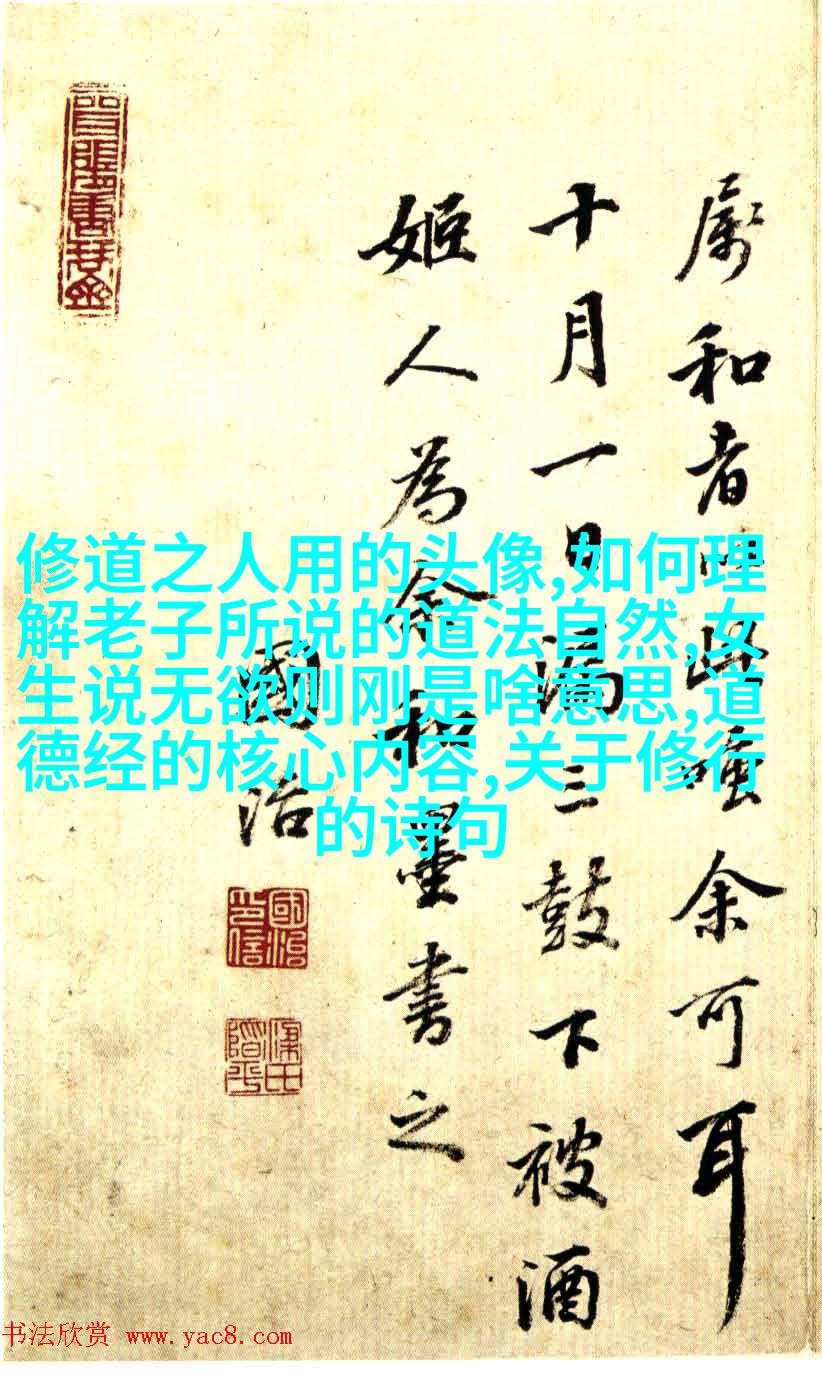 属和者以此嗤余可耳
十月一日漏三鼓下被酒
姬人為余和墨书之
國治
國治印信
修道之人用的头像,如何理
解老子所说的道法自然,女
生说无欲则刚是啥意思,道
德经的核心内容,关于修行
的诗句
书法欣赏 www.yac8.com